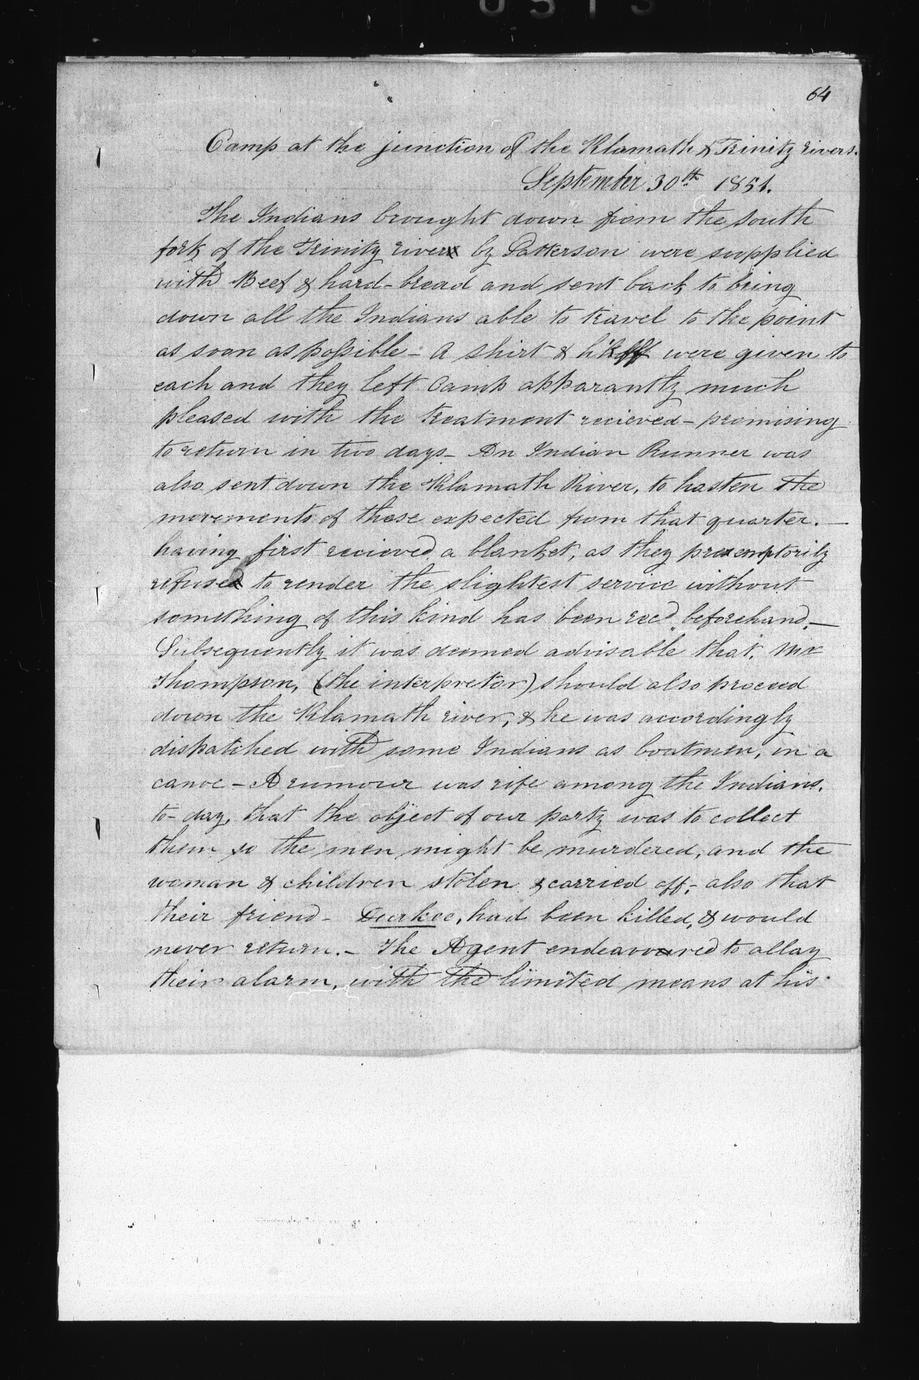 64
Camp at the junction of the Klamath & Trinity rivers.
September 30th 1851.
The Indians brought down from the south
fork of the Trinity river by Patterson were supplied
with Beef & hard-bread and sent back to bring
down all the Indians able to travel to the point
as soon as possible - A shirt & h'kff were given to
each and they left Camp apparantly much
pleased with the treatment recieved - promising
to return in two days - An Indian Runner was
also sent down the Klamath River, to hasten the
movements of those expected from that quarter. —
having first recieved a blanket, as they preemptorily
refused to render the slightest service without
something of this kind has been recd. beforehand. —
Subsequently it was deemed advisable that, Mr
Thompson, (the interpretor) should also proceed
down the Klamath river, & he was accordingly
dispatched with some Indians as boatmen, in a
canoe - A rumour was rife among the Indians.
to-day, that the object of our party was to collect
them so the men might be murdered, and the
woman & children stolen & carried off, - also that
their friend - Durkee, had been killed, & would
never return. - The Agent endeavored to allay
their alarm, with the limited means at his